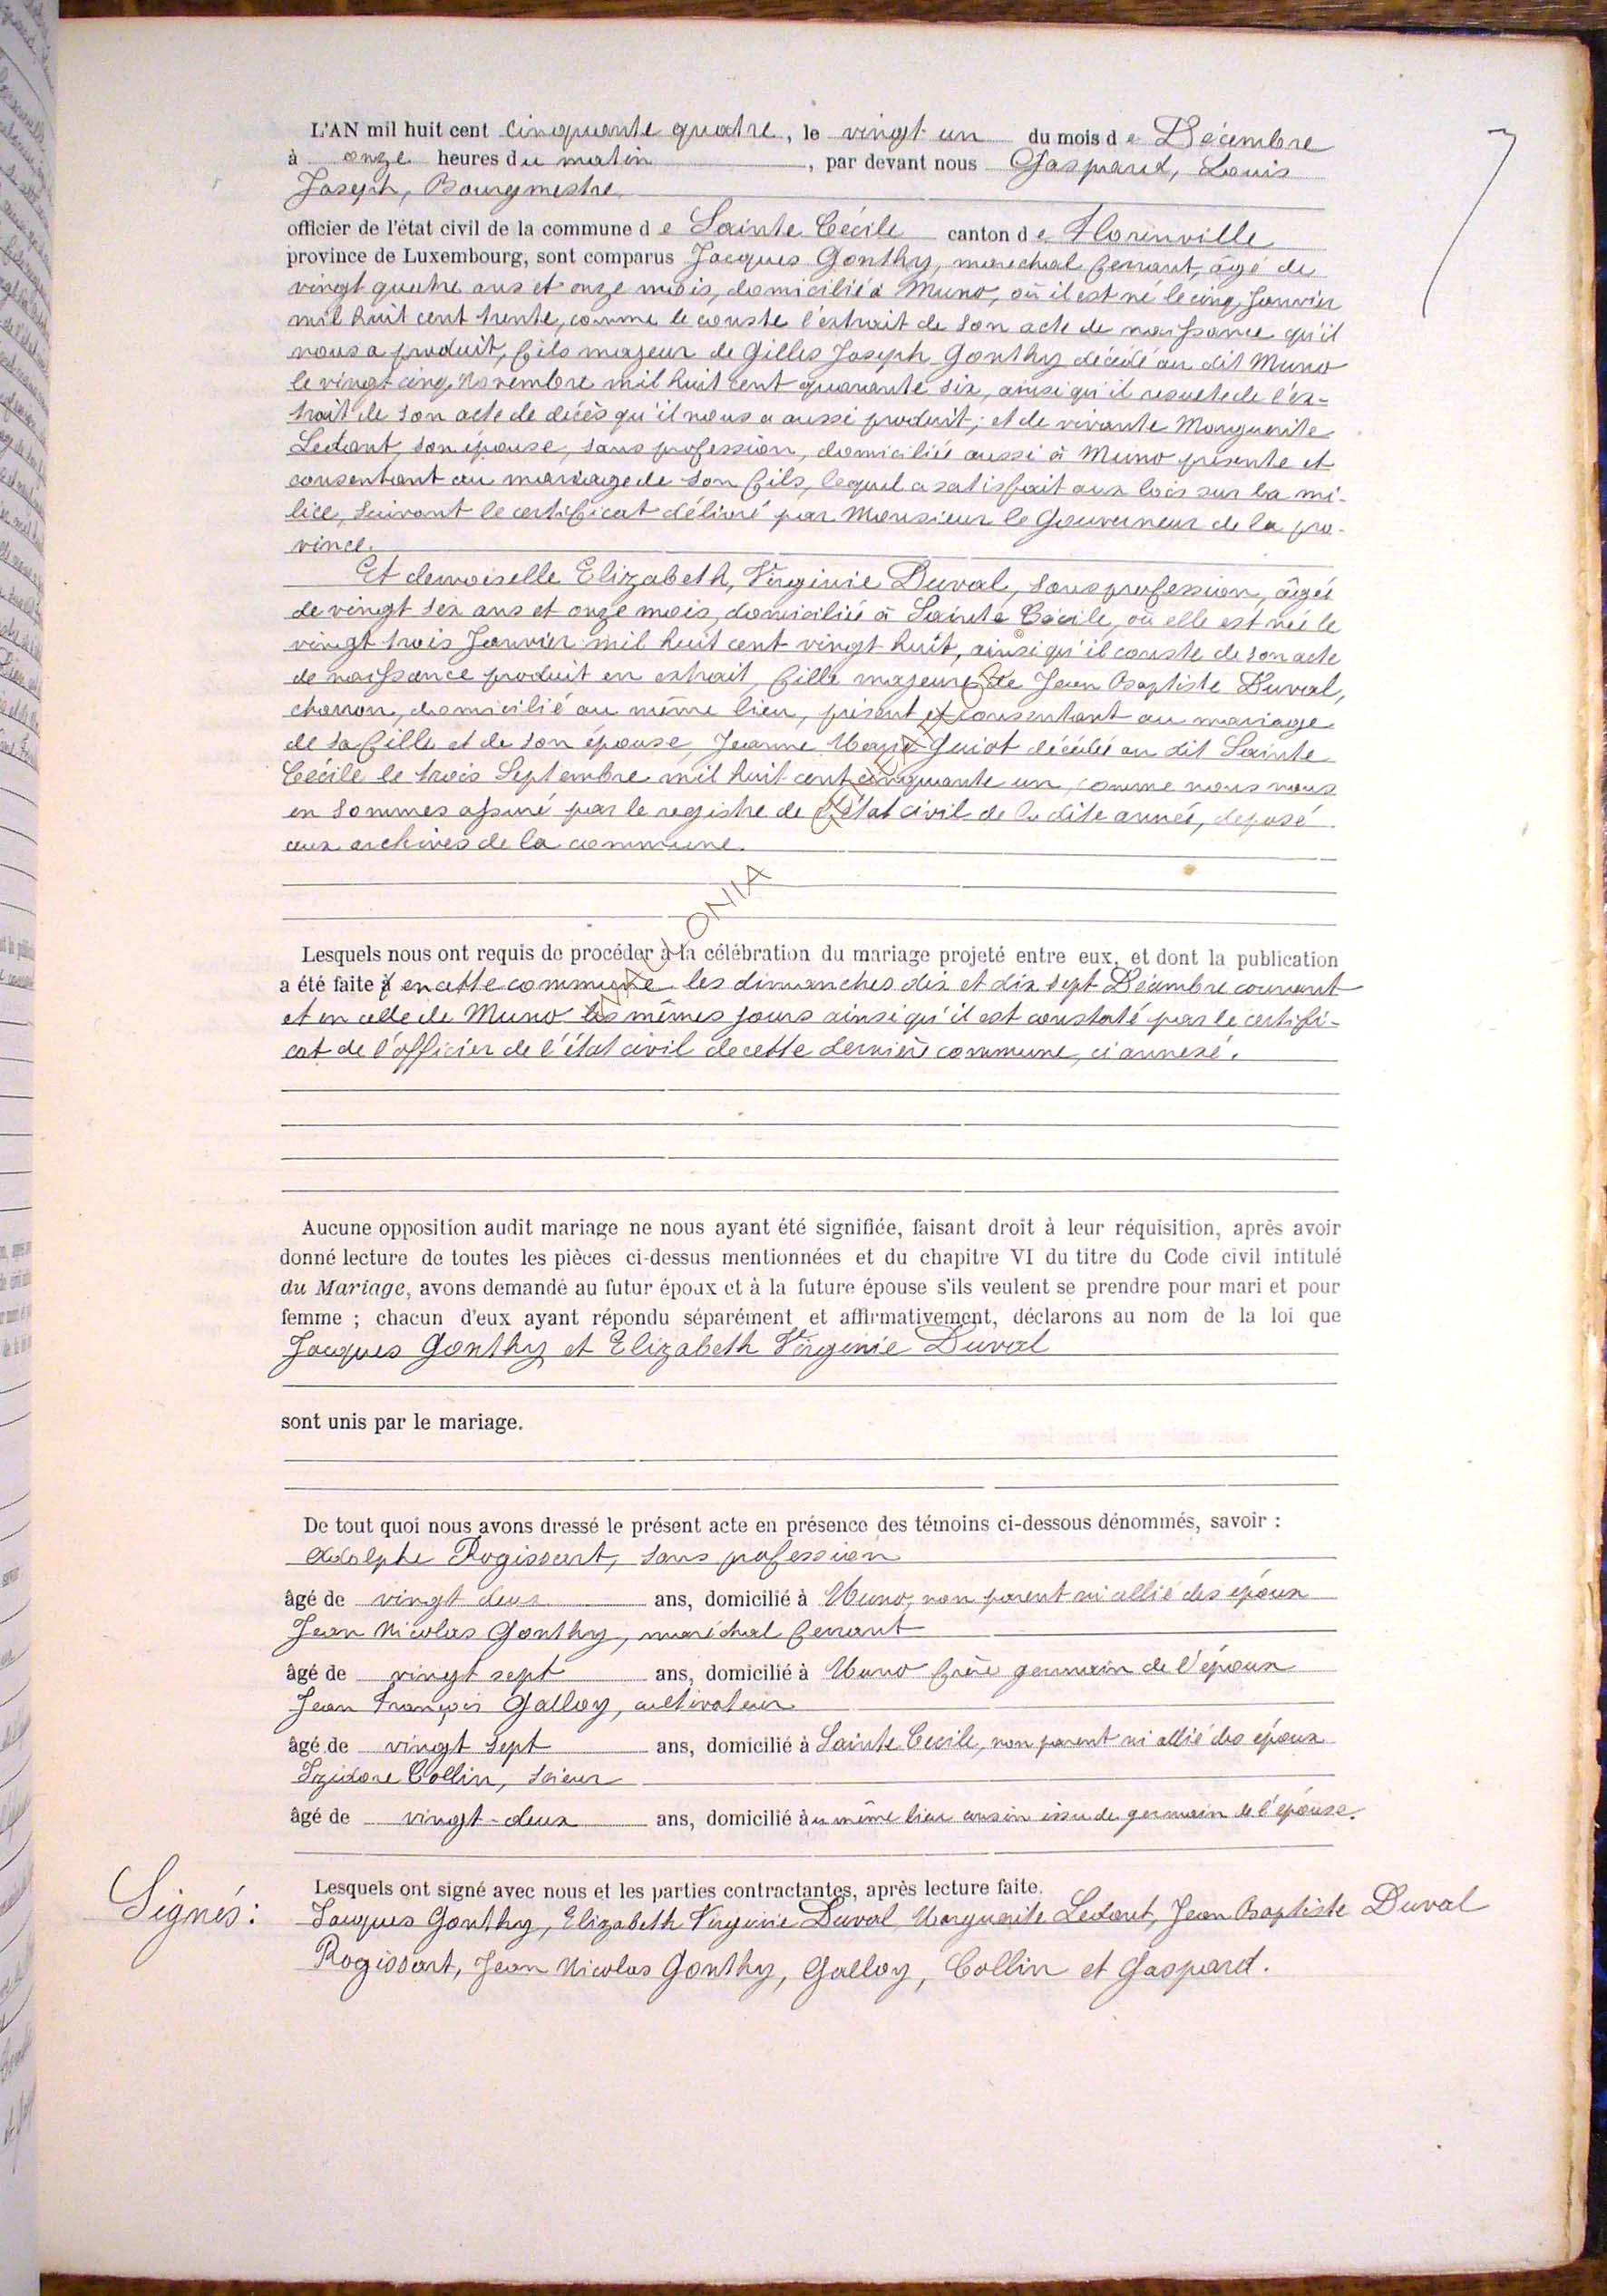 L'AN mil huit cent cinquante quatre, le vingt un du mois de Décembre
à onze heures du matin, par devant nous Gaspard, Louis
Joseph, Bourgmestre
officier de l'état civil de la commune de Sainte Cécile canton de Florenville
province de Luxembourg, sont comparus Jacques Gonthy, marechal ferrant, âgé de
vingt quatre ans et onze mois, domicilié à Muno, où il est né le cinq Janvier
mil huit cent trente, comme le conste l'extrait de son acte de naissance qu'il
nous a produit, fils majeur de Gilles Joseph Gonthy décédé au dit Muno
le vingt cinq Novembre mil huit cent quarante six, ainsi qu'il resulte de l'ex-
trait de son acte de décès qu'il nous a aussi produit; et de vivante Marguerite
Ledant, son épouse, sans profession, domiciliée aussi à Muno présente et
consentant au mariage de son fils, lequel a satisfait aux lois sur la mi-
lice, suivant le certificat délivré par Monsieur le Gouverneur de la pro-
vince.
Et demoiselle Elizabeth, Virginie Duval, sans profession, âgée
de vingt six ans et onze mois, domiciliée à Sainte Cécile, où elle est née le
vingt trois Janvier mil huit cent vingt huit, ainsi qu'il conste de son acte
de naissance produit en extrait, fille majeure de Jean Baptiste Duval,
charron, domicilié au même lieu, présent et consentant au mariage
de sa fille et de son épouse, Jeanne Marie Guiot décédée au dit Sainte
Cécile le trois Septembre mil huit cent cinquante un, comme nous nous
en sommes assuré par le registre de l'état civil de la dite année, déposé
aux archives de la commune.
Lesquels nous ont requis de procéder à la célébration du mariage projeté entre eux, et dont la publication
a été faite en cette commune les dimanches dix et dix sept Décembre courant
et en celle de Muno les mêmes jours ainsi qu'il est constaté par le certifi-
cat de l'officier de l'état civil de cette dernière commune, ci annexé.
Aucune opposition audit mariage ne nous ayant été signifiée, faisant droit à leur réquisition, après avoir
donné lecture de toutes les pièces ci-dessus mentionnées et du chapitre VI du titre du Code civil intitulé
du Mariage, avons demandé au futur époux et à la future épouse s'ils veulent se prendre pour mari et pour
femme ; chacun d'eux ayant répondu séparément et affirmativement, déclarons au nom de la loi que
Jacques Gonthy et Elizabeth Virginie Duval
sont unis par le mariage.
De tout quoi nous avons dressé le présent acte en présence des témoins ci-dessous dénommés, savoir :
Adolphe Rogissart, sans profession
âgé de vingt deux ans, domicilié à Muno, non parent ni allié des époux
Jean Nicolas Gonthy, maréchal ferrant
âgé de vingt sept ans, domicilié à Muno frère germain de l'époux
Jean François Galloy, cultivateur
âgé de vingt sept ans, domicilié à Sainte Cecile, non parent ni allié des époux
Izidore Collin, scieur
âgé de vingt-deux ans, domicilié au même lieu cousin issu de germain de l'épouse.
Lesquels ont signé avec nous et les parties contractantes, après lecture faite.
Signés: Jacques Gonthy, Elizabeth Virginie Duval, Marguerite Ledant, Jean Baptiste Duval
Rogissart, Jean Nicolas Gonthy, Galloy, Collin et Gaspard.